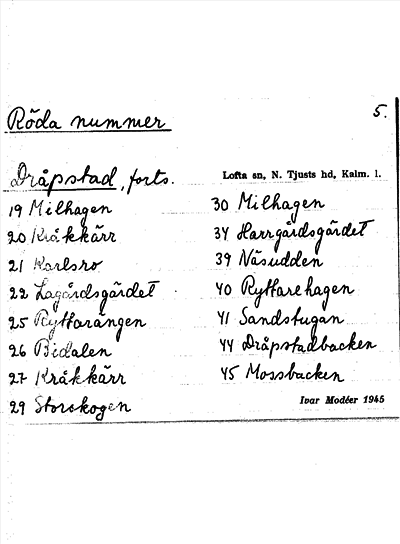 Röda nummer
5.
Dråpstad, forts.
Lofta sn, N. Tjusts hd, Kalm. l.
19 Milhagen
20 Kråkkärr
21 Karlsro
22 Lagårdsgärdet
25 Ryttarängen
26 Bidalen
27 Kråkkärr
29 Storskogen
30 Milhagen
34 Harrgårdsgärdet
39 Näsudden
40 Ryttarehagen
41 Sandstugan
44 Dråpstadbacken
45 Mossbacken
Ivar Modéer 1945